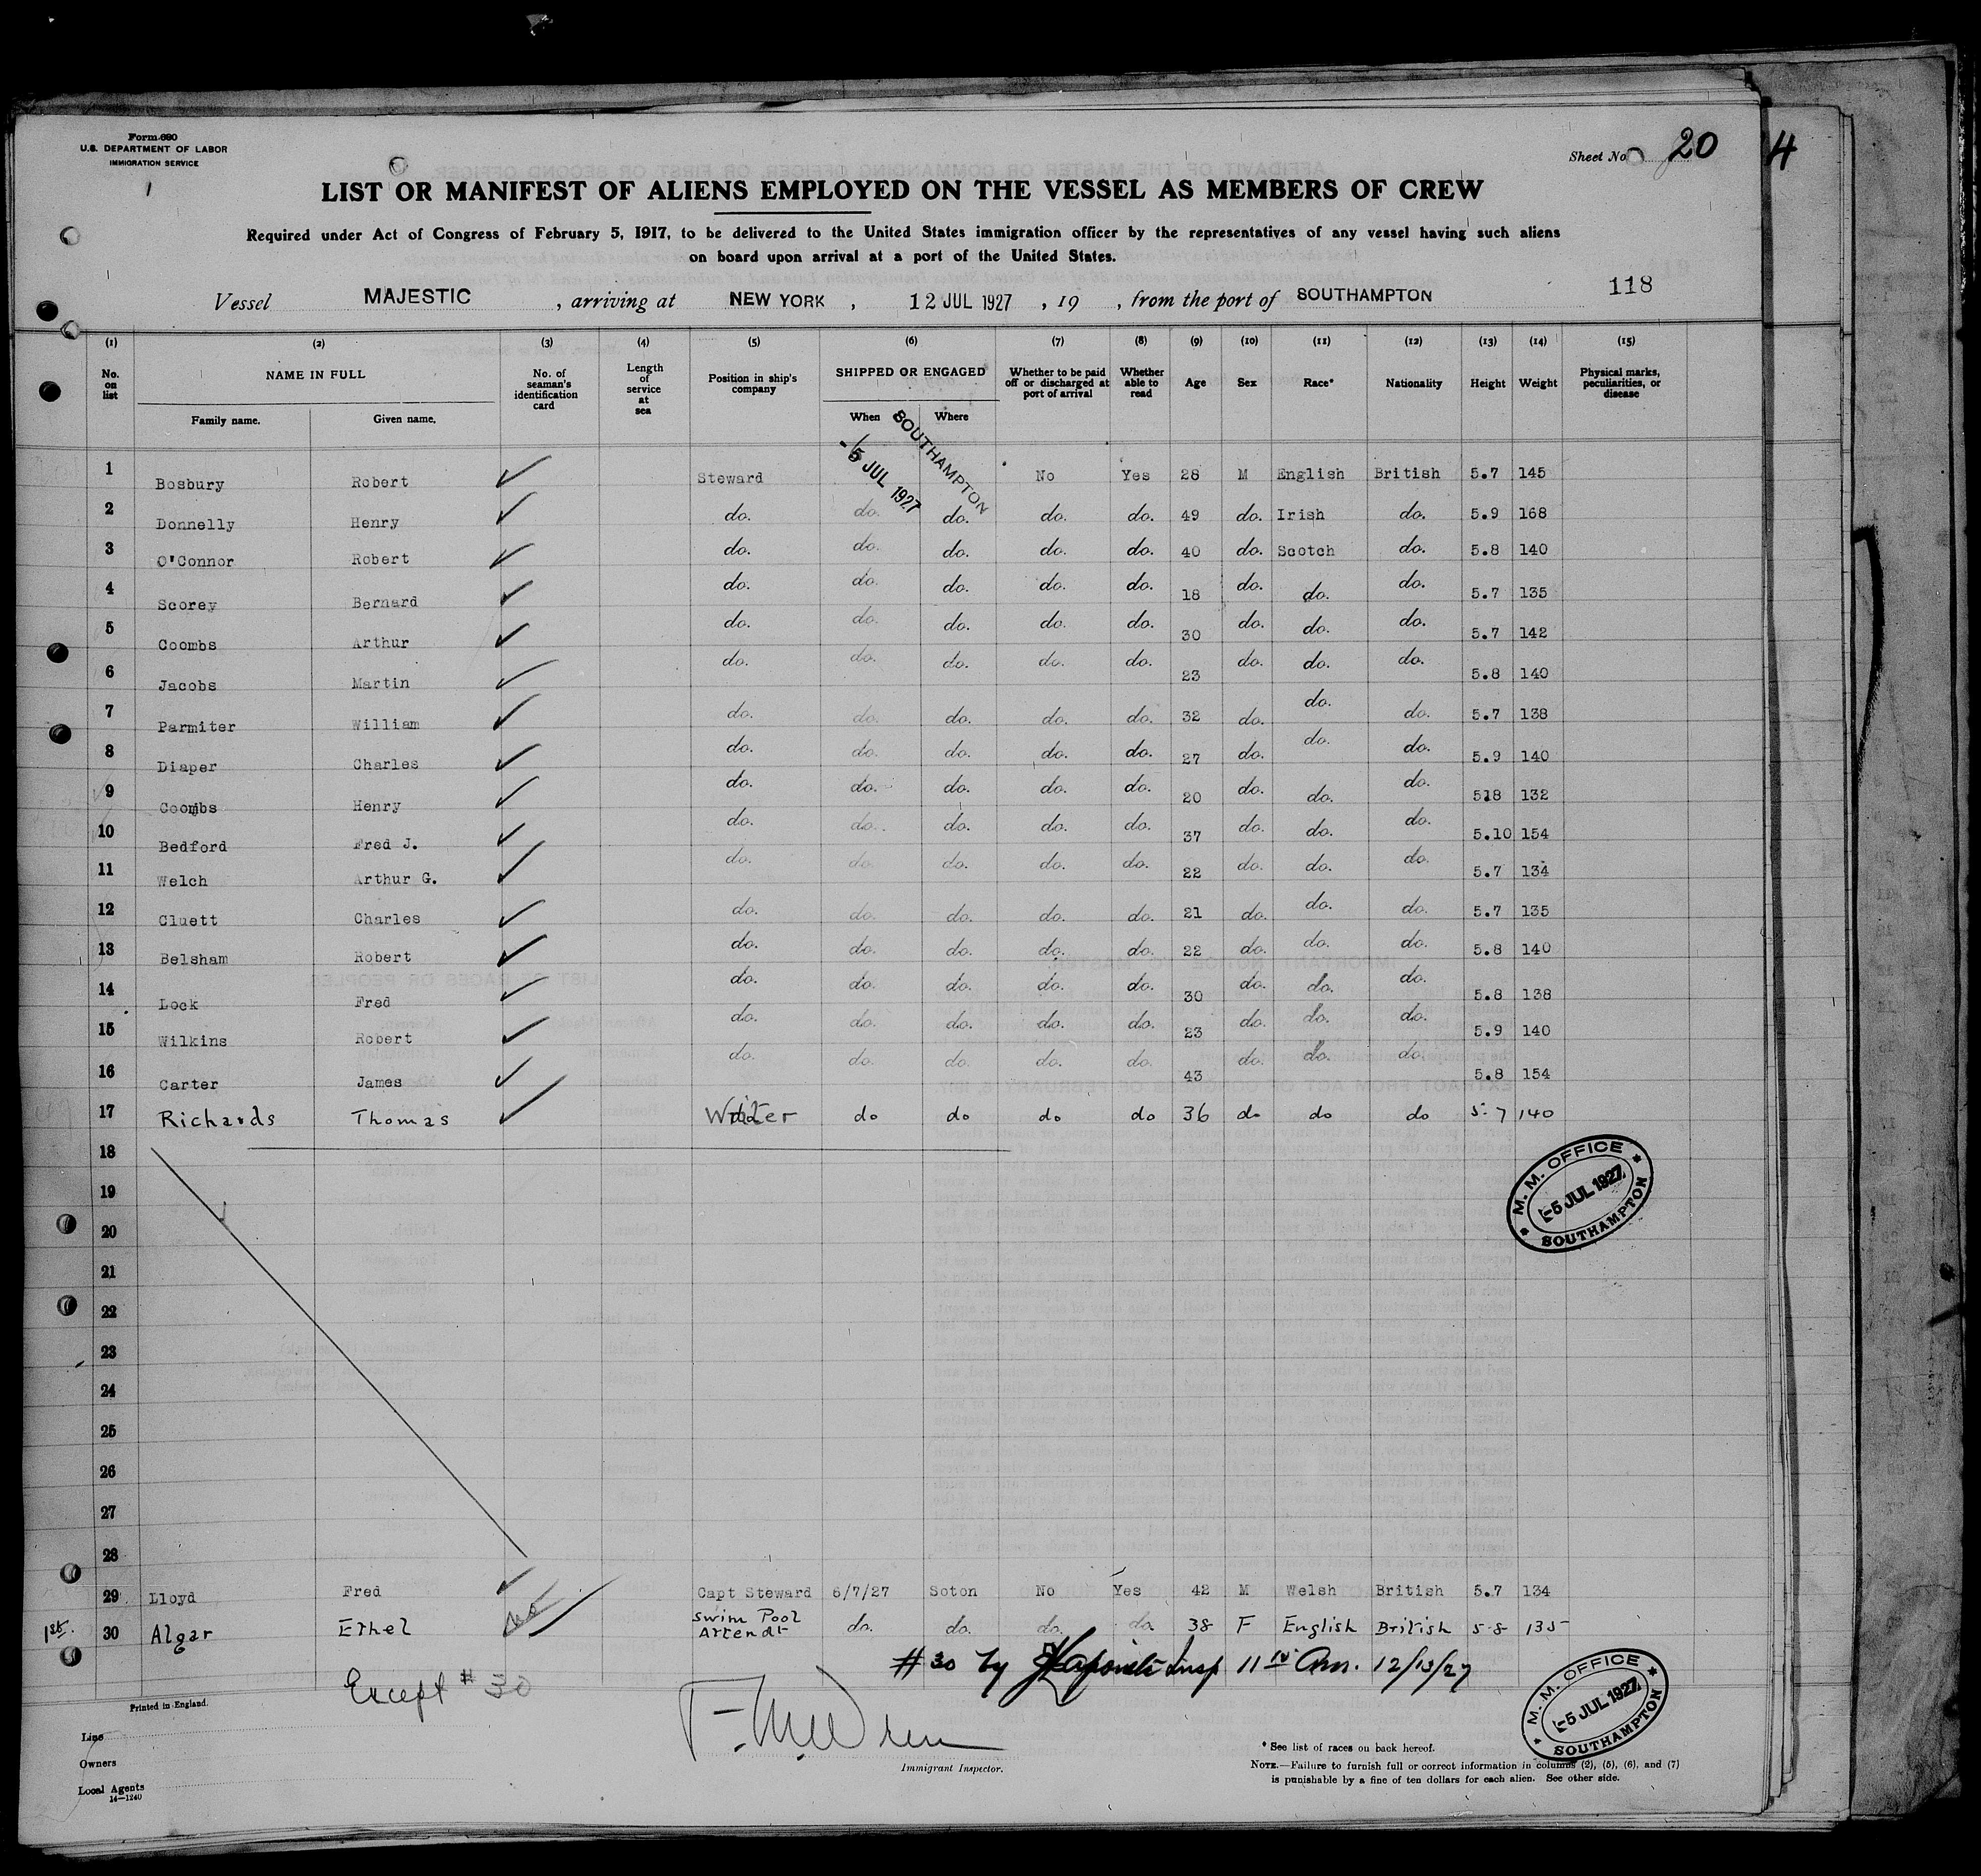 Form 680
U.S. DEPARTMENT OF LABOR
IMMIGRATION SERVICE
Sheet No. 20
4
LIST OR MANIFEST OF ALIENS EMPLOYED ON THE VESSEL AS MEMBERS OF CREW
Required under Act of Congress of February 5, 1917, to be delivered to the United States immigration officer by the representatives of any vessel having such aliens
on board upon arrival at a port of the United States.
Vessel MAJESTIC, arriving at NEW YORK, 12 JUL 1927, 19 , from the port of SOUTHAMPTON 118
(1) (2) (3) (4) (5) (6) (7) (8) (9) (10) (11) (12) (13) (14) (15)
No. on list NAME IN FULL Family name. Given name. No. of seaman's identification card Length of service at sea Position in ship's company SHIPPED OR ENGAGED When Where Whether to be paid off or discharged at port of arrival Whether able to read Age Sex Race* Nationality Height Weight Physical marks, peculiarities, or disease
-5 JUL 1927 SOUTHAMPTON
1 Bosbury Robert Steward No Yes 28 M English British 5.7 145
2 Donnelly Henry do. do. do. do. do. 49 do. Irish do. 5.9 168
3 O'Connor Robert do. do. do. do. do. 40 do. Scotch do. 5.8 140
4 Scorey Bernard do. do. do. do. do. 18 do. do. do. 5.7 135
5 Coombs Arthur do. do. do. do. do. 30 do. do. do. 5.7 142
6 Jacobs Martin do. do. do. do. do. 23 do. do. do. 5.8 140
7 Parmiter William do. do. do. do. do. 32 do. do. do. 5.7 138
8 Diaper Charles do. do. do. do. do. 27 do. do. do. 5.9 140
9 Coombs Henry do. do. do. do. do. 20 do. do. do. 518 132
10 Bedford Fred J. do. do. do. do. do. 37 do. do. do. 5.10 154
11 Welch Arthur G. do. do. do. do. do. 22 do. do. do. 5.7 134
12 Cluett Charles do. do. do. do. do. 21 do. do. do. 5.7 135
13 Belsham Robert do. do. do. do. do. 22 do. do. do. 5.8 140
14 Lock Fred do. do. do. do. do. 30 do. do. do. 5.8 138
15 Wilkins Robert do. do. do. do. do. 23 do. do. do. 5.9 140
16 Carter James do. do. do. do. do. 43 do. do. do. 5.8 154
17 Richards Thomas do do do do 36 do do do 5.7 140
18
19
20
21
22
23
24
25
26
27
28
M. M. OFFICE -5 JUL 1927 SOUTHAMPTON
29 Lloyd Fred Capt Steward 6/7/27 Soton No Yes 42 M Welsh British 5.7 134
1st. 30 Algar Ethel Swim Pool Attendt do. do. do. do. 38 F English British 5.8 135
#30 by Insp 12/13/27
Except #30
M. M. OFFICE -5 JUL 1927 SOUTHAMPTON
Printed in England.
Line
Owners
Local Agents
14—1240
Immigrant Inspector.
* See list of races on back hereof.
NOTE.—Failure to furnish full or correct information in columns (2), (5), (6), and (7)
is punishable by a fine of ten dollars for each alien. See other side.